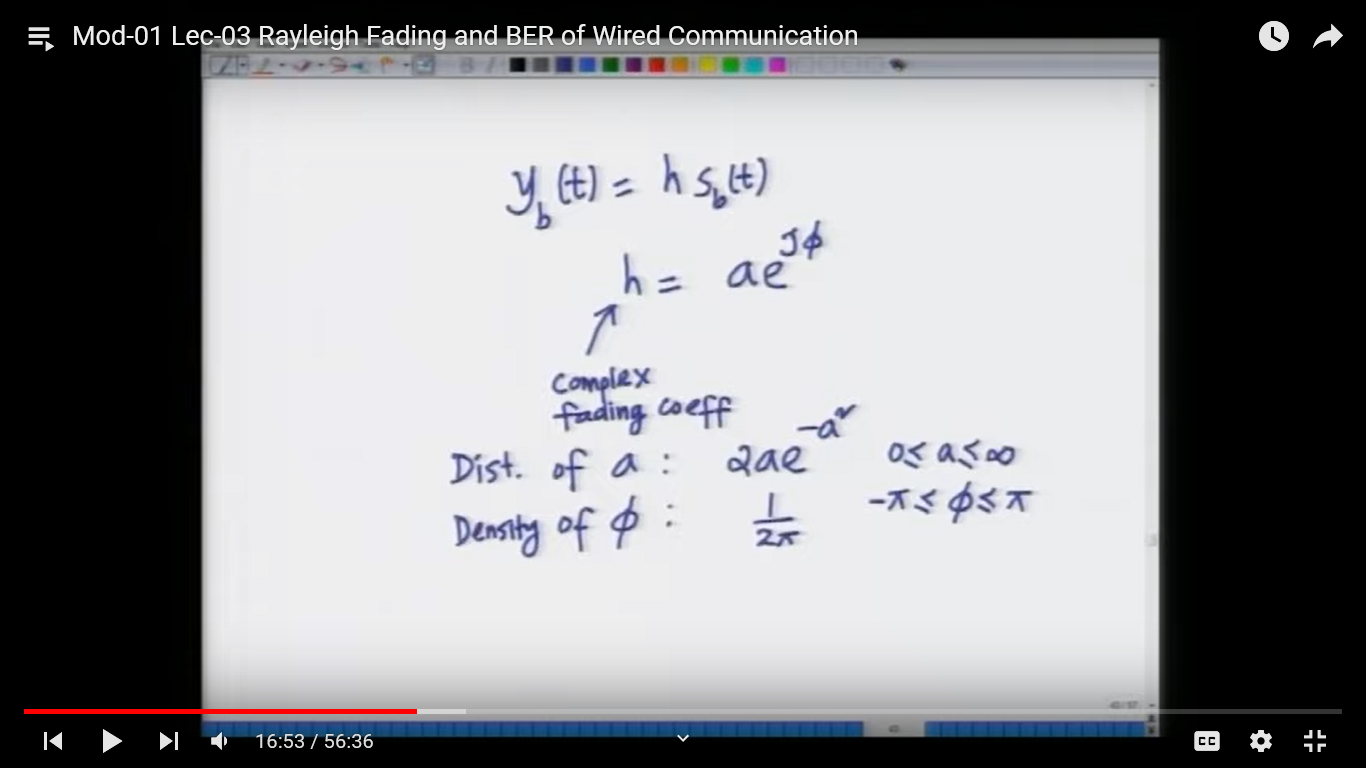 Mod-01 Lec-03 Rayleigh Fading and BER of Wired Communication
y_b(t) = h s_b(t)
h = ae^{Jϕ}
Complex
fading coeff
Dist. of a : 2ae^{-a²} 0 ≤ a ≤ ∞
Density of ϕ : 1/2π -π ≤ ϕ ≤ π
16:53 / 56:36
CC